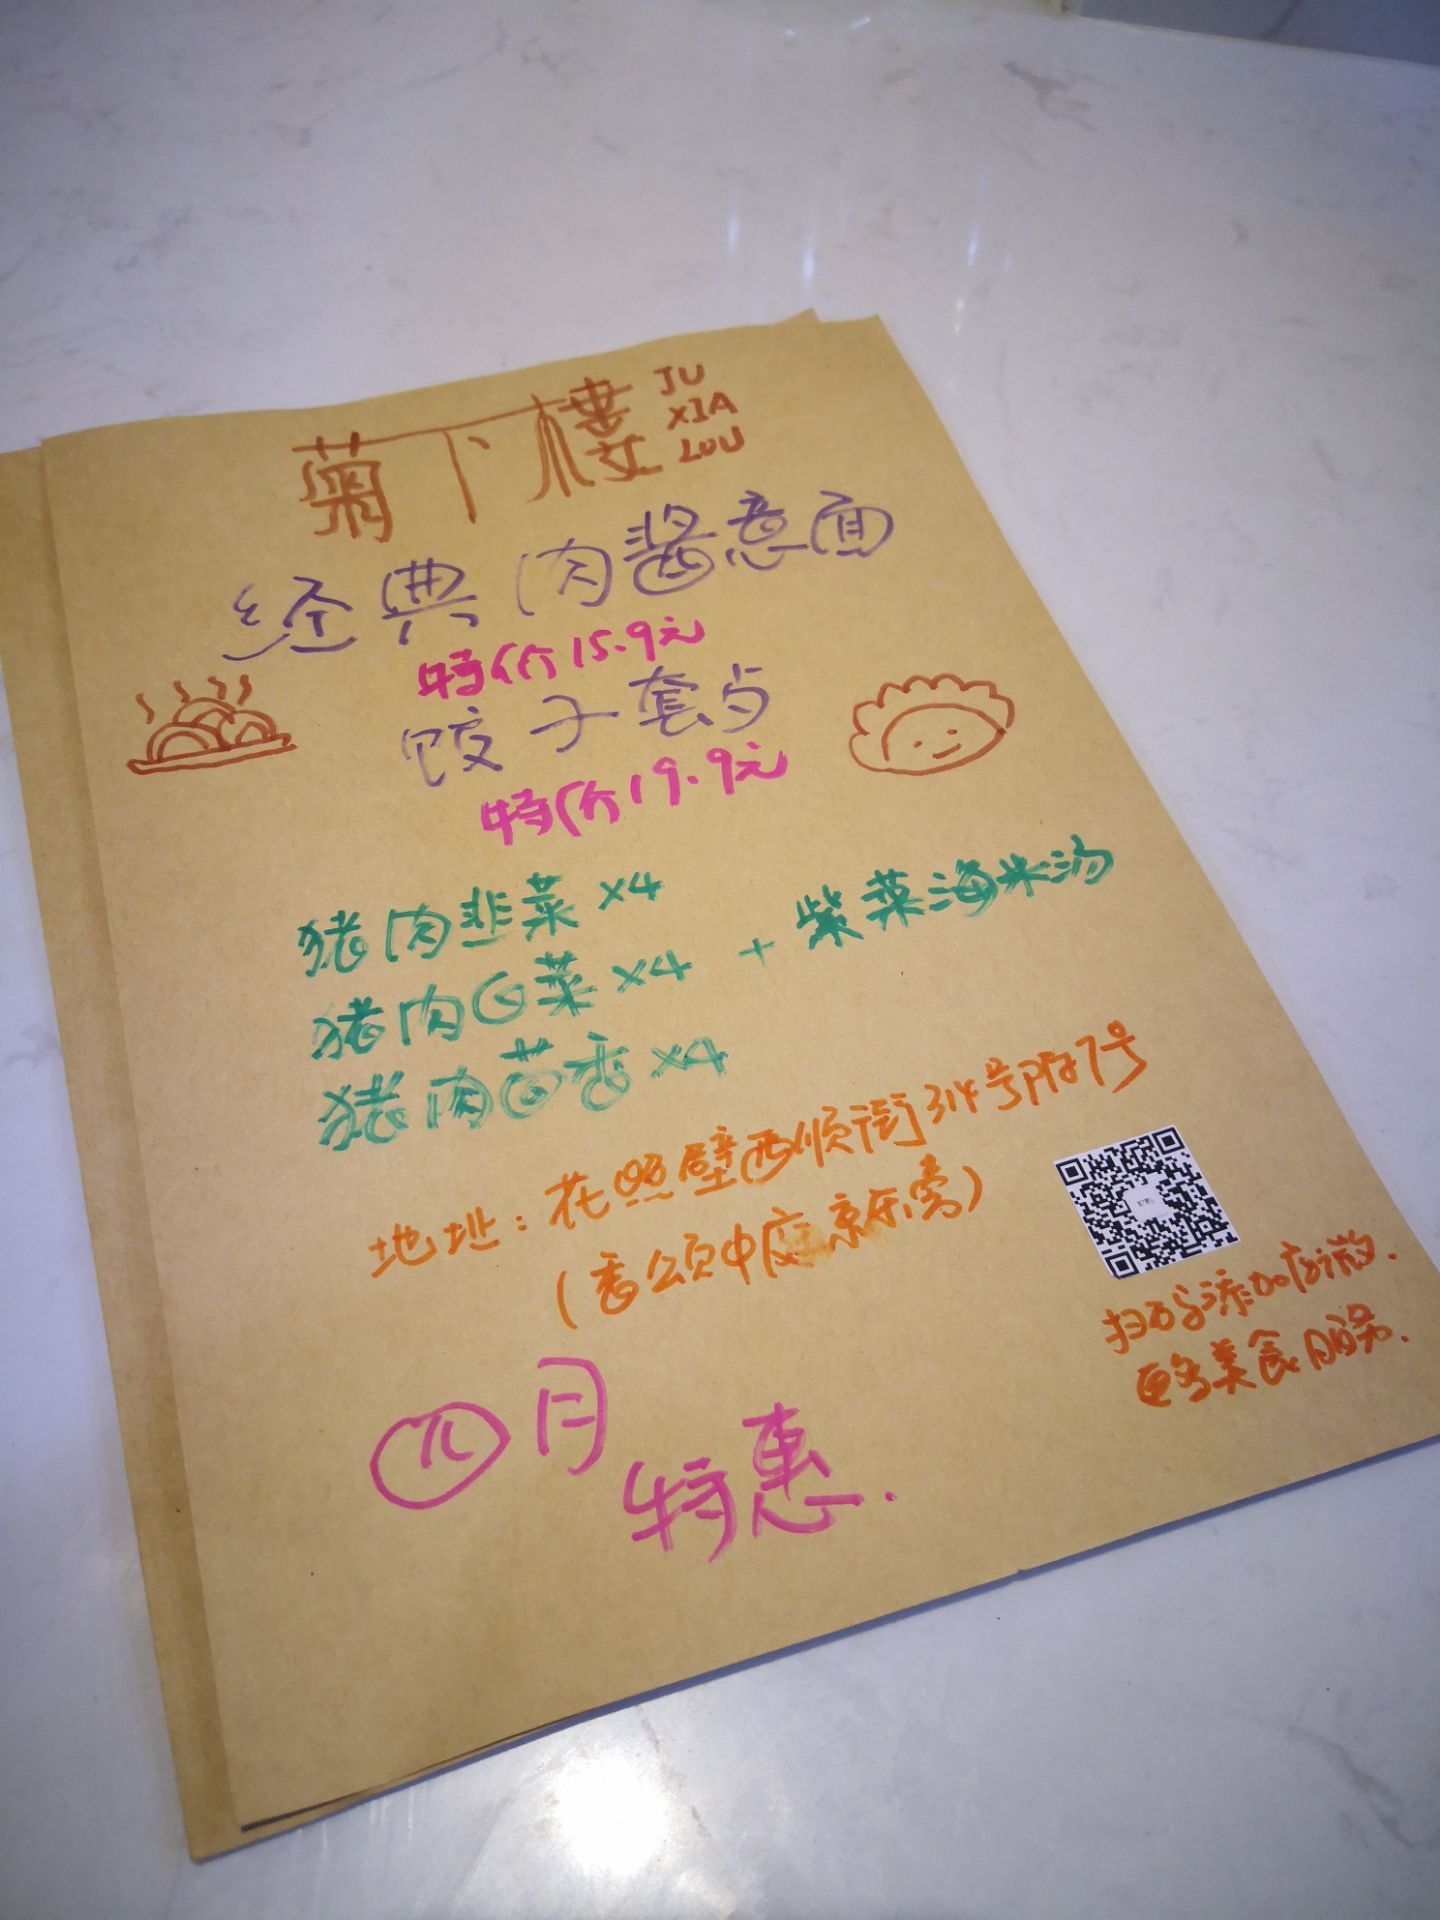 菊下楼
JU
XIA
LOU
经典肉酱意面
特价15.9元
饺子套点
特价19.9元
猪肉韭菜×4
猪肉白菜×4 + 紫菜海米汤
猪肉茴香×4
地址：花照壁西顺街314号附7号
（香颂中庭京东旁）
扫码添加店微.
更多美食服务.
四月
特惠.